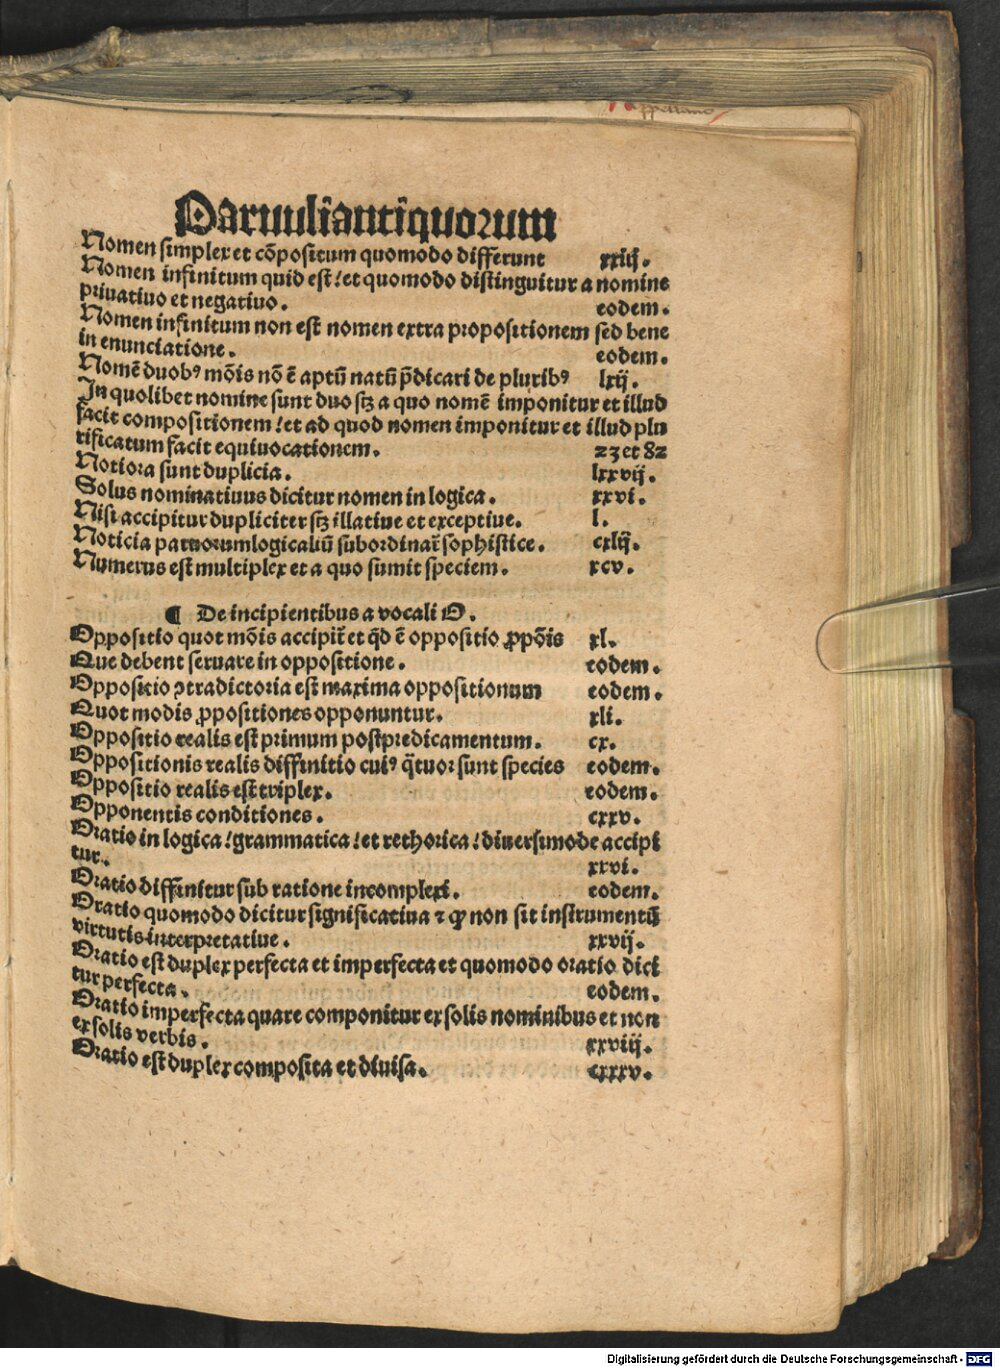 Paruuli antiquorum
Nomen simplex et cōpositum quomodo differunt xxiij.
Nomen infinitum quid est/ et quomodo distinguitur a nomine
priuatiuo et negatiuo. eodem.
Nomen infinitum non est nomen extra propositionem sed bene
in enunciatione. eodem.
Nomē duobꝰ mōis nō ē aptū natū p̄dicari de pluribꝰ lxij.
In quolibet nomine sunt duo sꝫ a quo nomē imponitur et illud
facit compositionem/ et ad quod nomen imponitur et illud plu
rificatum facit equiuocationem. 23 et 82
Notiora sunt duplicia. lxxvij.
Solus nominatiuus dicitur nomen in logica. xxvi.
Nisi accipitur dupliciter sꝫ illatiue et exceptiue. l.
Noticia paruorum logicaliū subordinat̄ sophistice. cxlij.
Numerus est multiplex et a quo sumit speciem. xcv.
¶ De incipientibus a vocali O.
Oppositio quot mōis accipit̄ et qd ē oppositio ꝓpōis xl.
Que debent seruare in oppositione. eodem.
Oppositio ꝯtradictoria est maxima oppositionum eodem.
Quot modis ꝓpositiones opponuntur. xli.
Oppositio realis est primum postpredicamentum. cx.
Oppositionis realis diffinitio cuiꝰ q̄tuor sunt species eodem.
Oppositio realis est triplex. eodem.
Opponentis conditiones. cxxv.
Oratio in logica/ grammatica/ et rethorica/ diuersimode accipi
tur. xxvi.
Oratio diffinitur sub ratione incomplexi. eodem.
Oratio quomodo dicitur significatiua ⁊ ꝙ non sit instrumentū
virtutis interpretatiue. xxvij.
Oratio est duplex perfecta et imperfecta et quomodo oratio dici
tur perfecta. eodem.
Oratio imperfecta quare componitur ex solis nominibus et non
ex solis verbis. xxviij.
Oratio est duplex composita et diuisa. cxxxv.
Digitalisierung gefördert durch die Deutsche Forschungsgemeinschaft - DFG